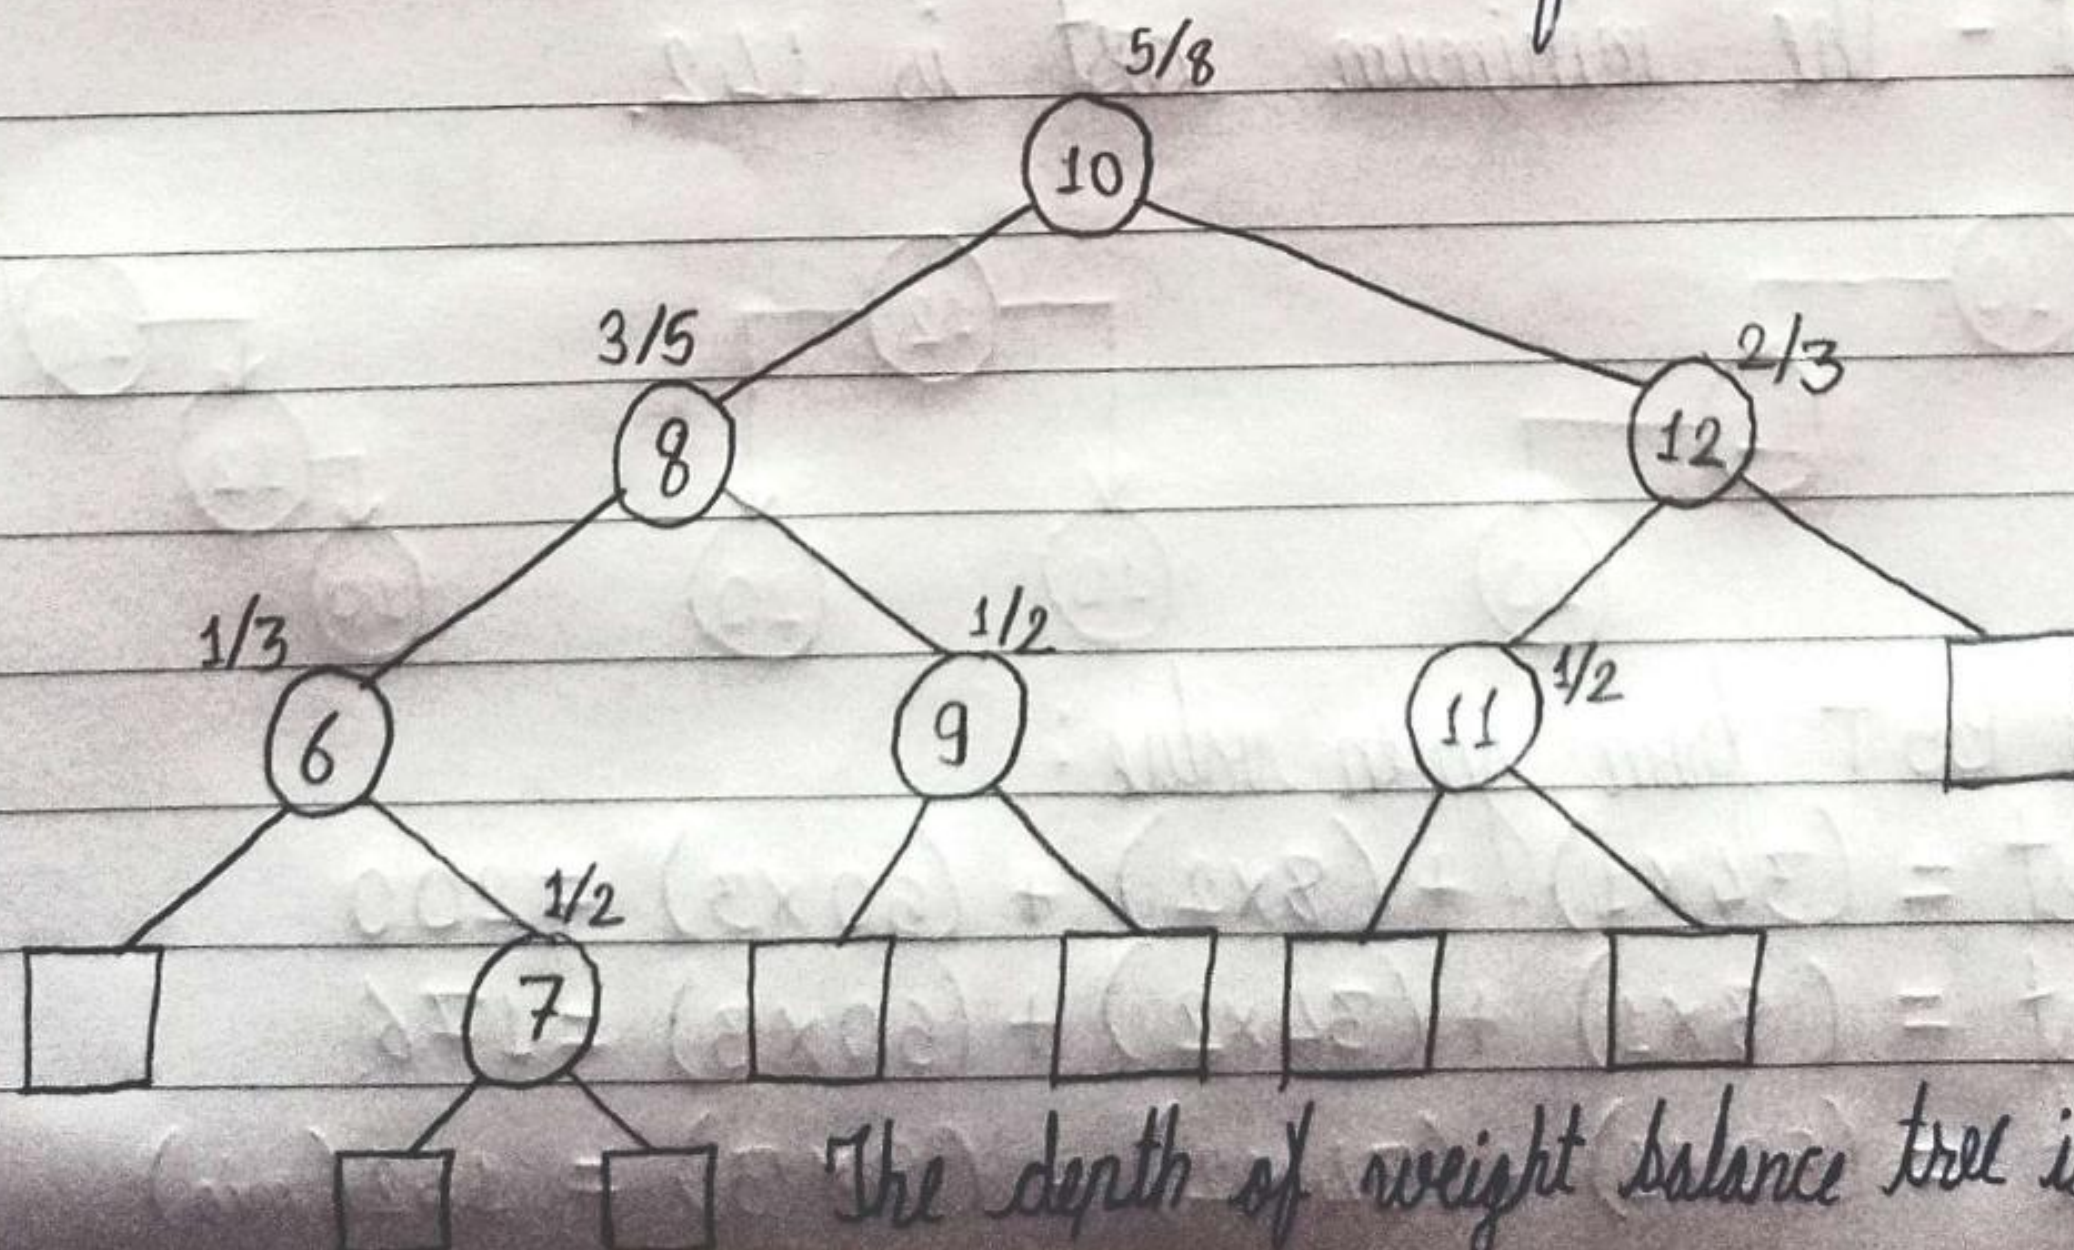 5/8
10
3/5
2/3
8
12
1/3
1/2
6
9
11
1/2
1/2
7
The depth of weight balance tree